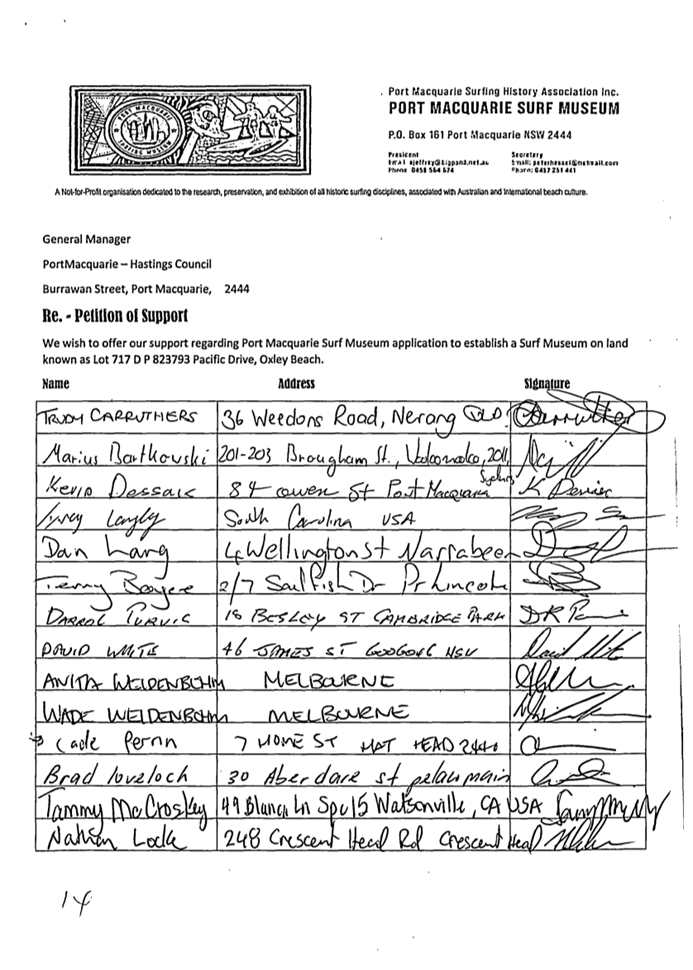 PORT MACQUARIE
SURFING MUSEUM
Port Macquarie Surfing History Association Inc.
PORT MACQUARIE SURF MUSEUM
P.O. Box 161 Port Macquarie NSW 2444
President Secretary
Email ajeffrey@bigpond.net.au Email: peterhessel@hotmail.com
Phone 0458 564 674 Phone: 0437 251 441
A Not-for-Profit organisation dedicated to the research, preservation, and exhibition of all historic surfing disciplines, associated with Australian and International beach culture.
General Manager
PortMacquarie – Hastings Council
Burrawan Street, Port Macquarie, 2444
Re. - Petition of Support
We wish to offer our support regarding Port Macquarie Surf Museum application to establish a Surf Museum on land
known as Lot 717 D P 823793 Pacific Drive, Oxley Beach.
Name Address Signature
TRUDY CARRUTHERS 36 Weedons Road, Nerang QLD. Carruthers
Marius Bartkowski 201-203 Brougham St., 2011,
Sydney
Kevin 84 owen St Port Macquarie K
South Carolina USA
Dan Lang 4 Wellington St Narrabeen
Terry 2/7 Sailfish Dr Pt Lincoln
DARROL PURVIS 18 BESLEY ST CAMBRIDGE PARK DR
DAVID WHITE 46 JAMES ST GOOGONG NSW David White
ANITA WEIDENBOHM MELBOURNE
WADE WEIDENBOHM MELBOURNE
Cade Perrin 7 HOME ST HAT HEAD 2440
Brad loveloch 30 Aberdare st pelaw main
Tammy McCroskey 49 Blanca Ln Spc 15 Watsonville, CA USA
Nathan Locke 248 Crescent Head Rd Crescent Head
14